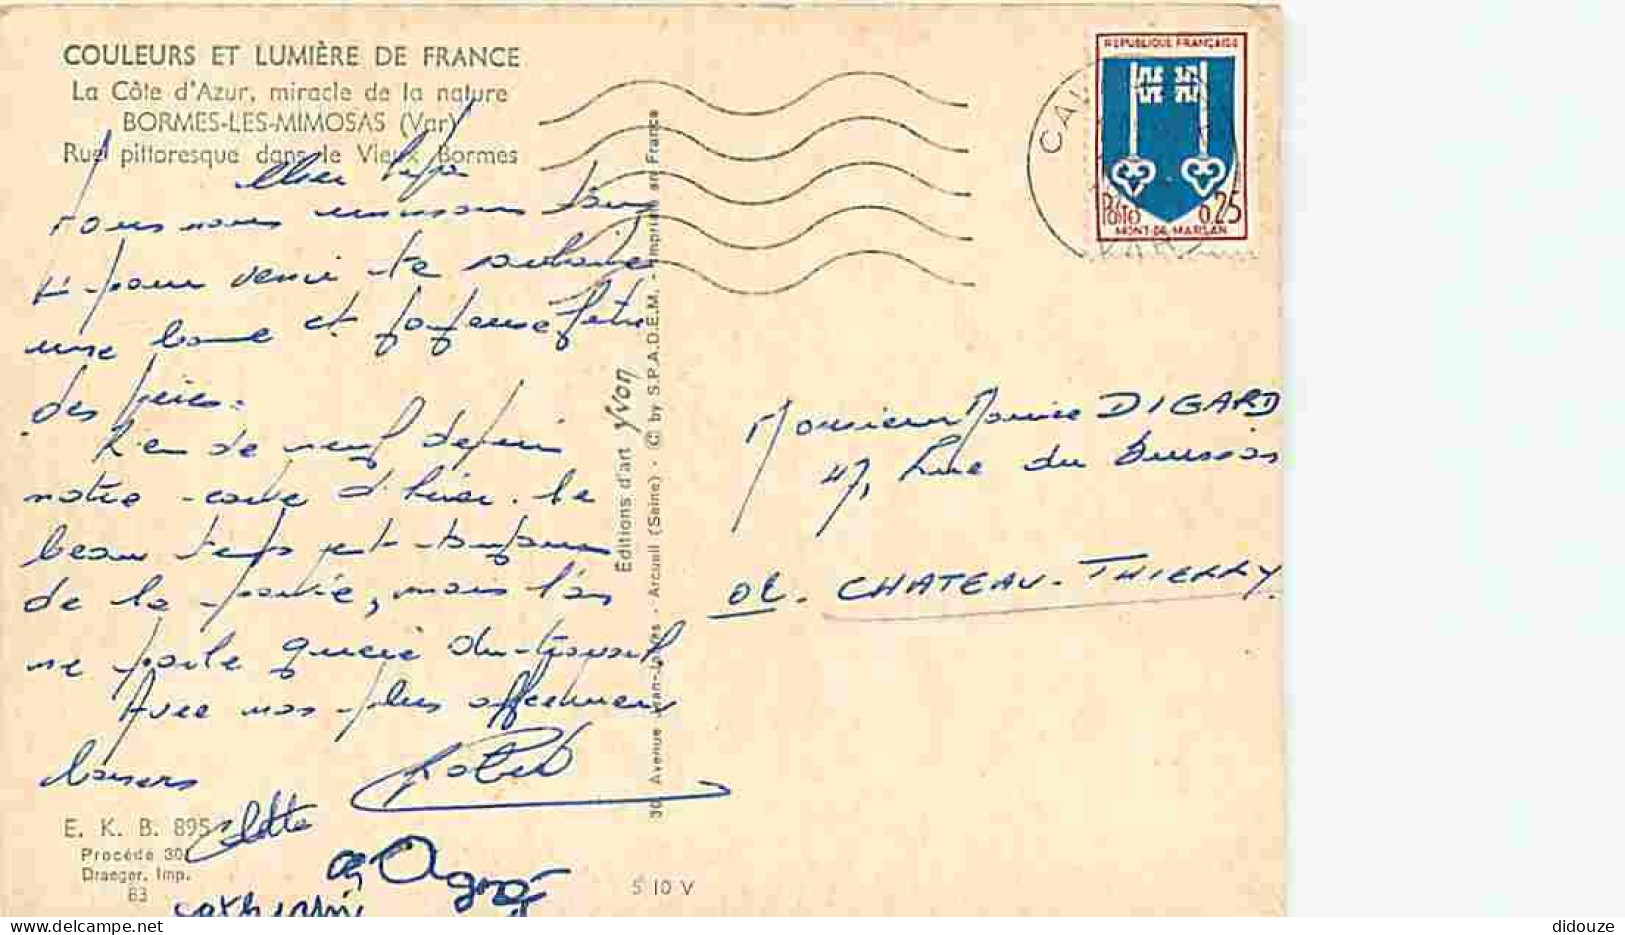 COULEURS ET LUMIÈRE DE FRANCE
La Côte d'Azur, miracle de la nature
BORMES-LES-MIMOSAS (Var)
Rue pittoresque dans le Vieux Bormes
Cher Papa
Nous nous unissons tous
pour venir te souhaiter
une bonne et joyeuse fête
des pères.
Rien de neuf depuis
notre carte d'hier. Le
beau temps est toujours
de la partie, mais l'on
ne parle guère du travail
Avec nos plus affectueux
baisers
Robert
Colette
Agnès
Catherine
E. K. B. 895
Procédé 301
Draeger, Imp.
83
5 10 V
Éditions d'art Yvon
30, Avenue Jean-Jaurès - Arcueil (Seine) - © by S.P.A.D.E.M. - Imprimé en France
CAV
VAR
REPUBLIQUE FRANÇAISE
POSTES
0,25
MONT-DE-MARSAN
Monsieur Maurice DIGARD
47, Rue du Buisson
02. CHATEAU-THIERRY
didouze